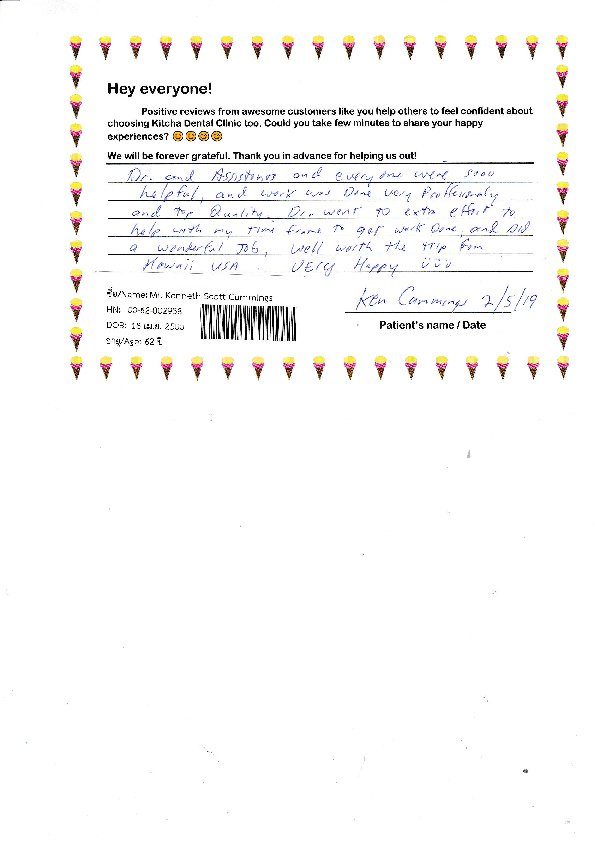 Hey everyone!
Positive reviews from awesome customers like you help others to feel confident about
choosing Kitcha Dental Clinic too. Could you take few minutes to share your happy
experiences? 😀😀😀😀
We will be forever grateful. Thank you in advance for helping us out!
Dr. and Assistance and everyone were sooo
helpful, and work was Done very Proffesionaly
and top Quality. Dr. went to extra effort to
help with my time frame to get work Done, and DID
a wonderful Job, well worth the trip from
Hawaii USA. VERY Happy
ชื่อ/Name: Mr. Kenneth Scott Cummings
HN: 00-62-002958
DOB: 18 เม.ย. 2500
อายุ/Age: 62 ปี
Ken Cummings 2/5/19
Patient's name / Date